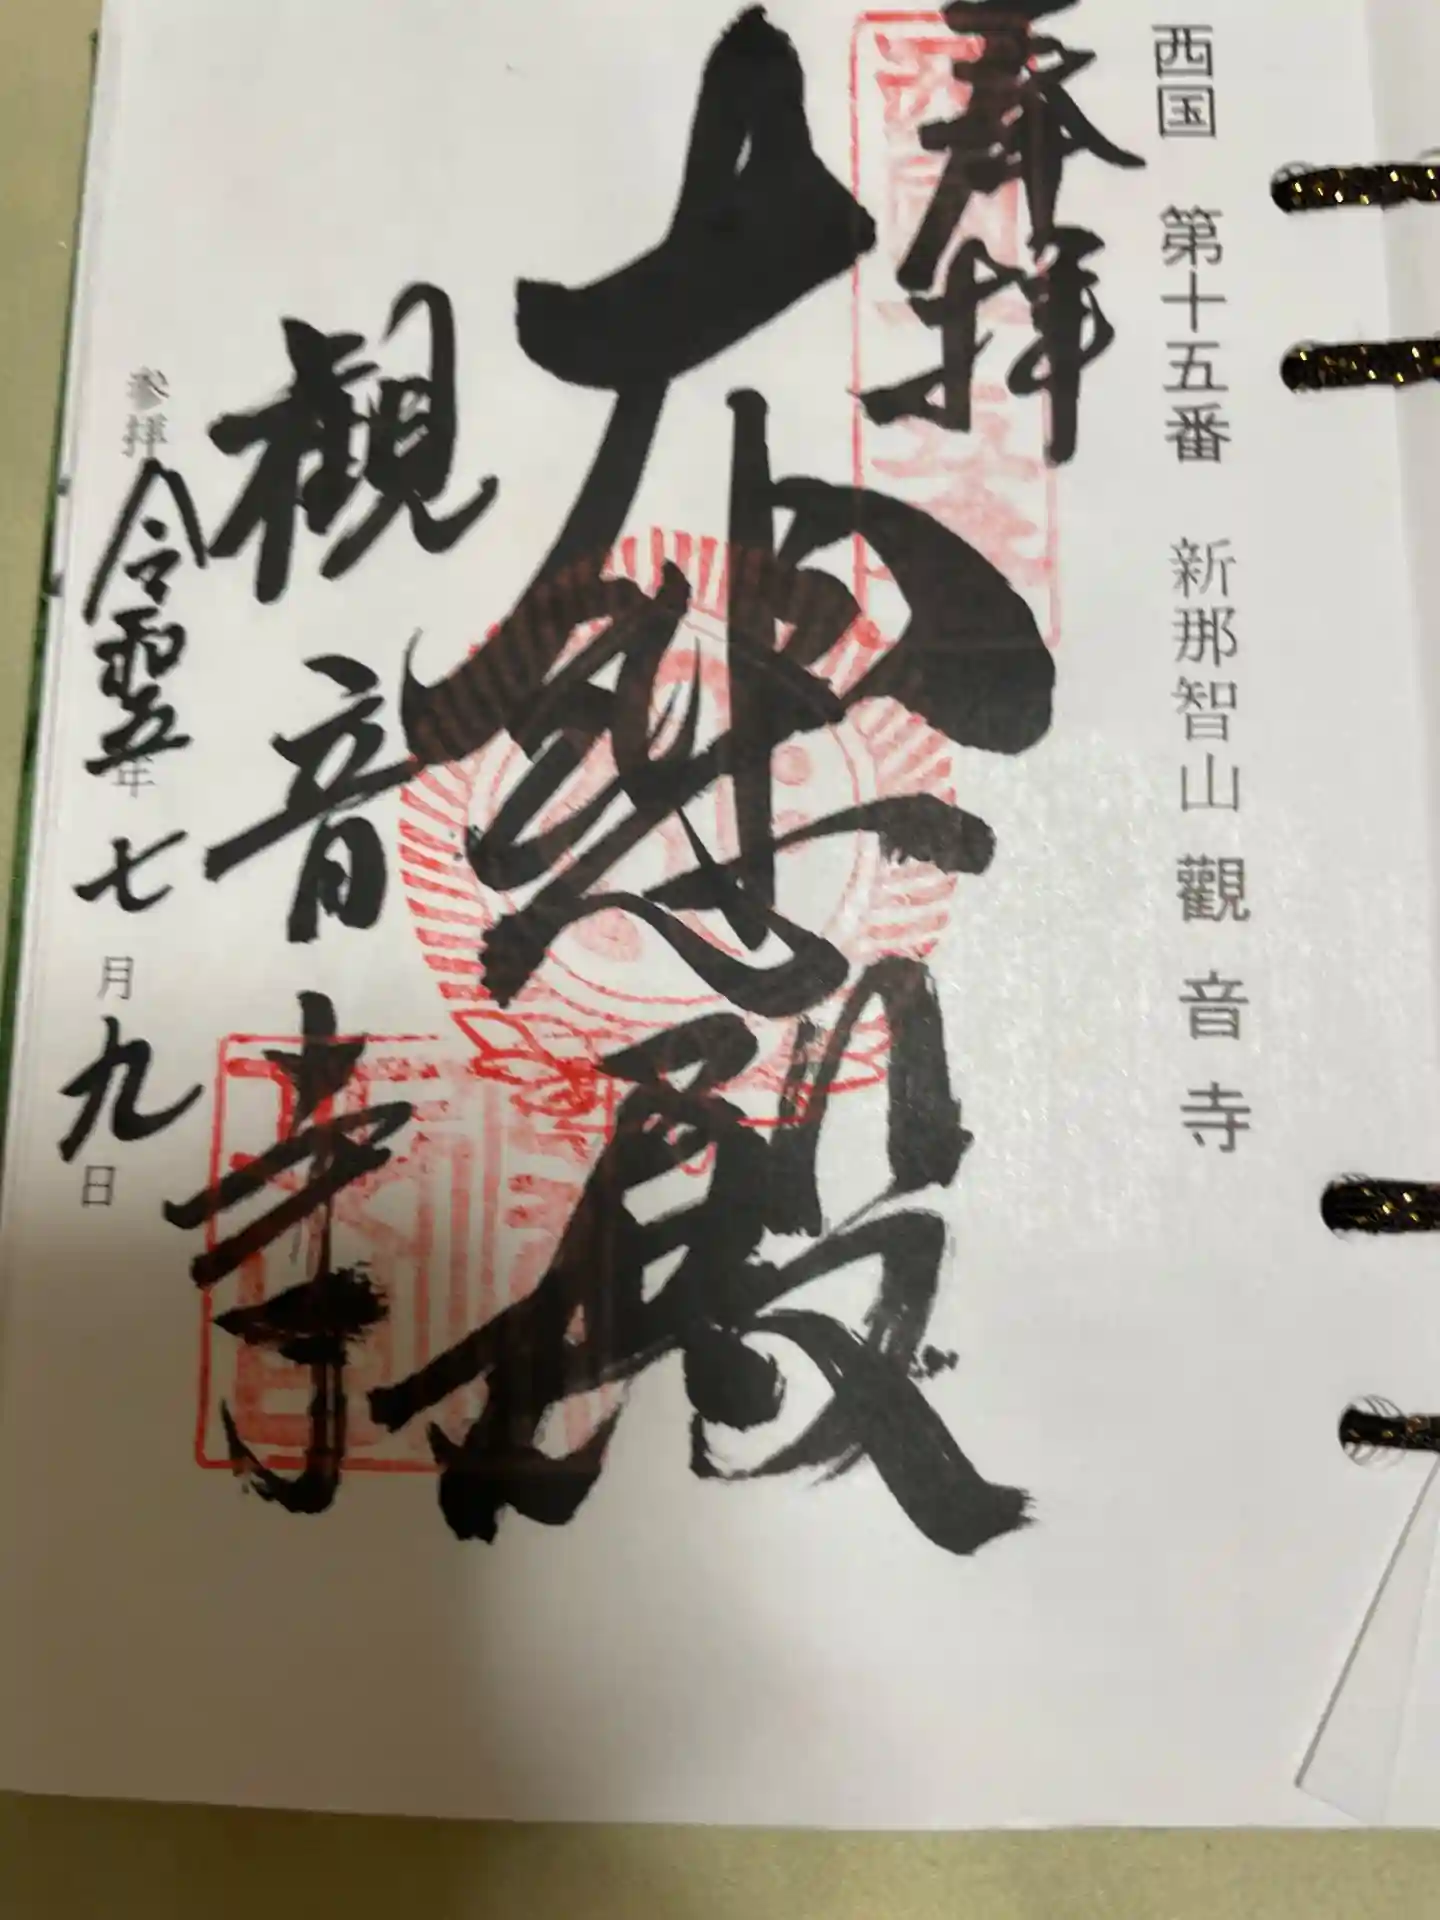 西国 第十五番 新那智山 觀音寺
奉拝
大悲殿
觀音寺
参拝 令和五年 七月九日